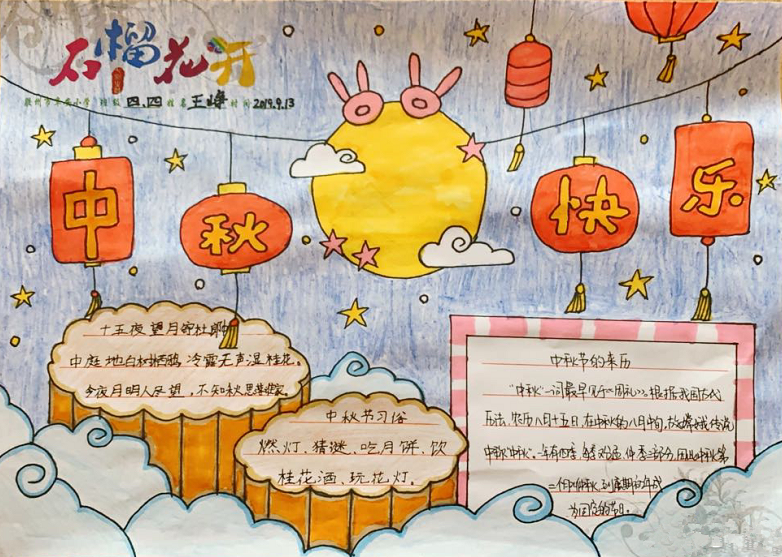 石榴花开
小学 班级 四.四 姓名 王峥 时间 2019.9.13
中秋快乐
十五夜望月寄杜郎中
中庭地白树栖鸦,冷露无声湿桂花。
今夜月明人尽望,不知秋思落谁家。
中秋节习俗
燃灯、猜谜、吃月饼、饮
桂花酒、玩花灯。
中秋节的来历
"中秋"一词最早见于《周礼》,根据我国古代
历法,农历八月十五日,在中秋的八月中旬,故
中秋。一年有四季,每季
为固定的节日。